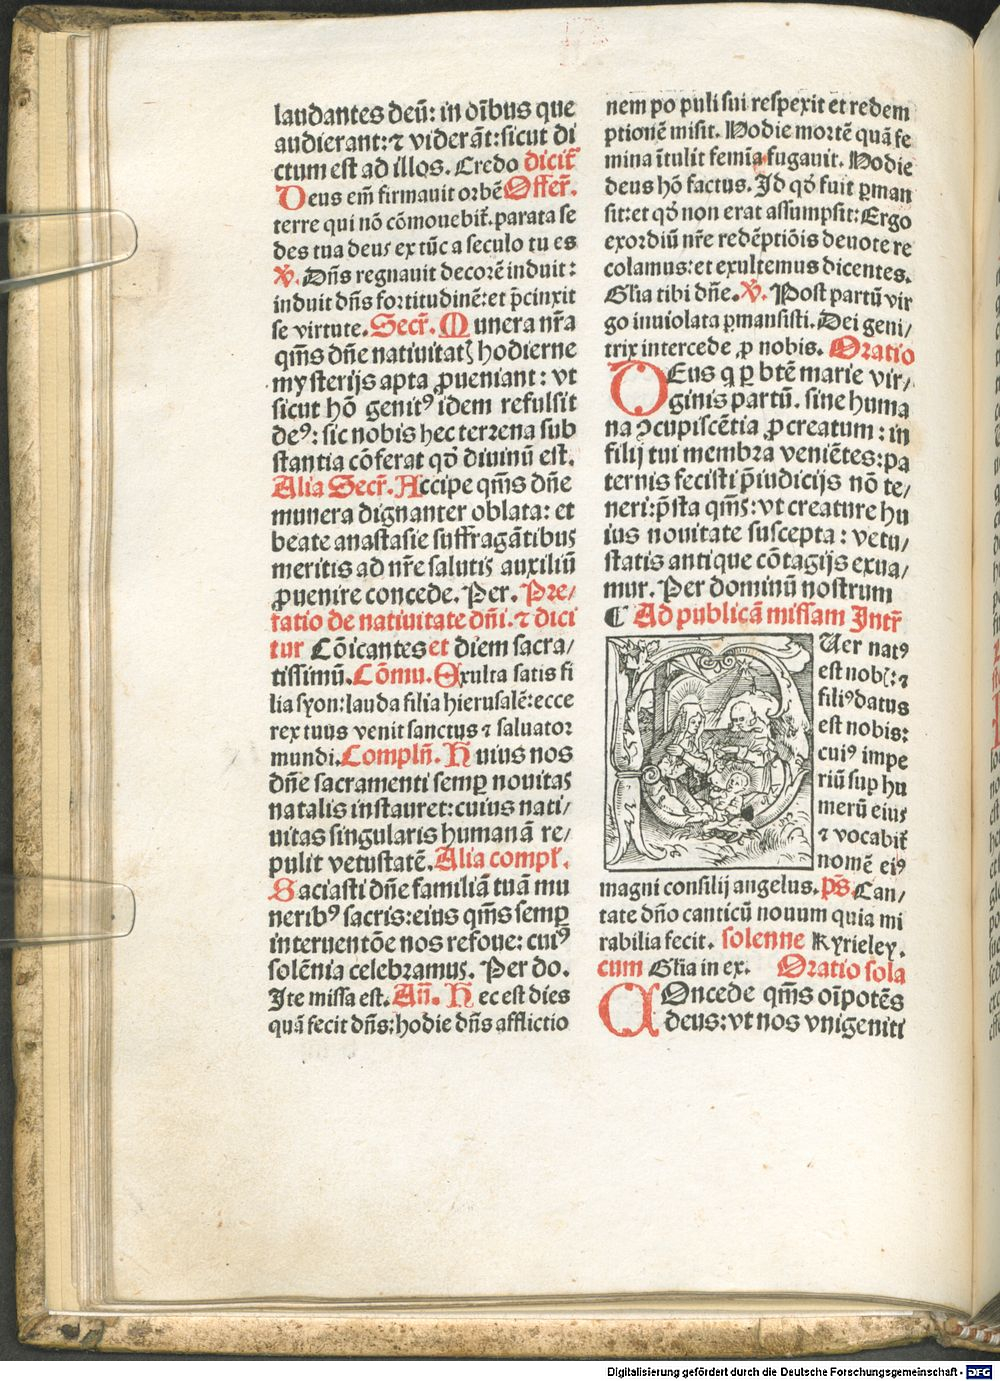 laudantes deū: in oībus que
audierant: ⁊ viderāt: sicut di
ctum est ad illos. Credo dicit̄
Deus em̄ firmauit orbē Offer̄.
terre qui nō cōmouebit̄. parata se
des tua deus ex tūc a seculo tu es
V̄. Dn̄s regnauit decorē induit:
induit dn̄s fortitudinē: et p̄cinxit
se virtute. Secr̄. Munera nr̄a
qm̄s dn̄e natiuitatꝭ hodierne
mysterijs apta ꝓueniant: vt
sicut hō genitꝰ idem refulsit
deꝰ: sic nobis hec terrena sub
stantia cōferat qđ diuinū est.
Alia Secr̄. Accipe qm̄s dn̄e
munera dignanter oblata: et
beate anastasie suffragātibus
meritis ad nr̄e salutis auxiliū
ꝓuenire concede. Per. Pre/
fatio de natiuitate dn̄i. ⁊ dici
tur Cōicantes et diem sacra/
tissimū. Cōmu. Exulta satis fi
lia syon: lauda filia hierusalē: ecce
rex tuus venit sanctus ⁊ saluator
mundi. Compln̄. Huius nos
dn̄e sacramenti semꝑ nouitas
natalis instauret: cuius nati/
uitas singularis humanā re/
pulit vetustatē. Alia compl̄.
Saciasti dn̄e familiā tuā mu
neribꝰ sacris: eius qm̄s semꝑ
interuentōe nos refoue: cuiꝰ
solēnia celebramus. Per do.
Ite missa est. An̄. Hec est dies
quā fecit dn̄s: hodie dn̄s afflictio
nem populi sui respexit et redem
ptionē misit. Hodie mortē quā fe
mina ītulit femīa fugauit. Hodie
deus hō factus. Id qđ fuit ꝑman
sit: et qđ non erat assumpsit: Ergo
exordiū nr̄e redēptiōis deuote re
colamus: et exultemus dicentes.
Gl̄ia tibi dn̄e. V̄. Post partū vir
go inuiolata ꝑmansisti. Dei geni/
trix intercede ꝓ nobis. Oratio
DEus q ꝑ btē marie vir/
ginis partū. sine huma
na ꝯcupiscētia ꝓcreatum: in
filij tui membra veniētes: pa
ternis fecisti p̄iudicijs nō te/
neri: p̄sta qm̄s: vt creature hu
ius nouitate suscepta: vetu/
statis antique cōtagijs exua/
mur. Per dominū nostrum
¶ Ad publicā missam Intr̄
PUer natꝰ
est nob̄: ⁊
filiꝰ datus
est nobis:
cuiꝰ impe
riū sup hu
merū eius
⁊ vocabit̄
nomē eiꝰ
magni consilij angelus. Ps̄. Can/
tate dn̄o canticū nouum quia mi
rabilia fecit. solenne Kyrieley.
cum Gl̄ia in ex. Oratio sola
COncede qm̄s oīpotēs
deus: vt nos vnigeniti
Digitalisierung gefördert durch die Deutsche Forschungsgemeinschaft - DFG